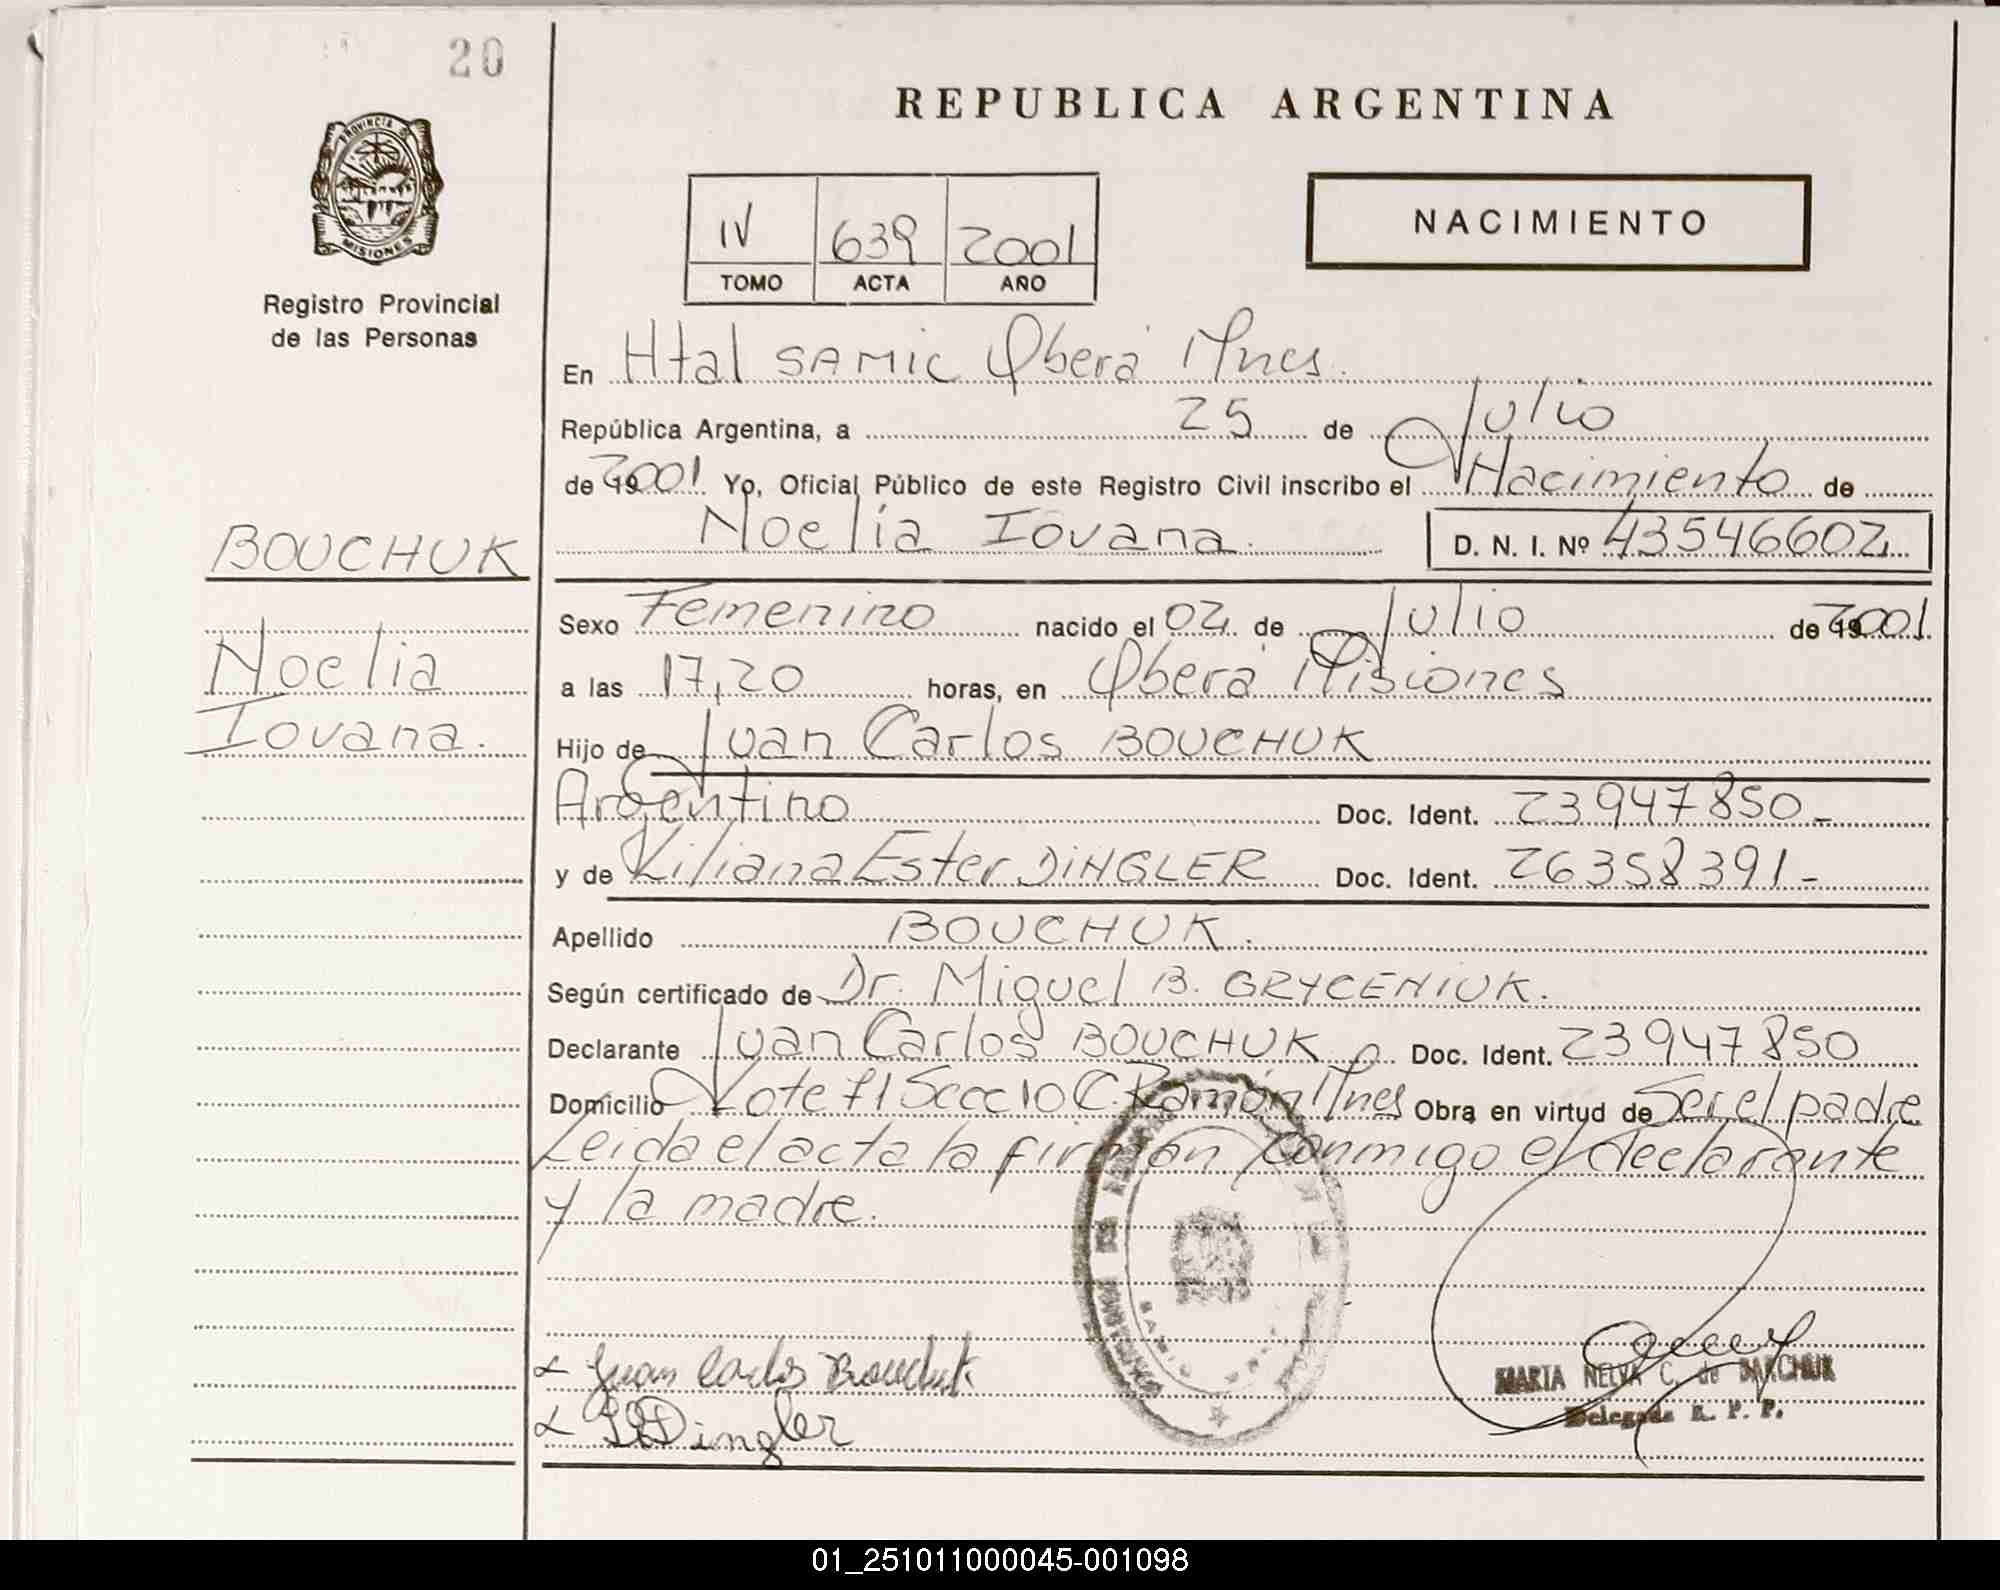 20
REPUBLICA ARGENTINA
PROVINCIA DE
MISIONES
Registro Provincial
de las Personas
IV 639 2001
TOMO ACTA AÑO
NACIMIENTO
En Htal SAMIC Oberá Mnes.
República Argentina, a 25 de Julio
de 2001 Yo, Oficial Público de este Registro Civil inscribo el Nacimiento de
Noelia Iovana. D. N. I. Nº 43546602
BOUCHUK
Noelia
Iovana.
Sexo Femenino nacido el 02 de Julio de 2001
a las 17,20 horas, en Oberá Misiones
Hijo de Juan Carlos BOUCHUK
Argentino Doc. Ident. 23947850-
y de Liliana Ester DINGLER Doc. Ident. 26358391-
Apellido BOUCHUK.
Según certificado de Dr. Miguel B. GRYCENIUK.
Declarante Juan Carlos BOUCHUK Doc. Ident. 23947850
Domicilio Lote 71 Secc 10 C. Ramón Mnes Obra en virtud de Ser el padre
Leida el acta la firman conmigo el declarante
y la madre.
Juan Carlos Bouchuk
Dingler
MARTA NELVA C. de BARCHUK
Delegada R. P. P.
01_251011000045-001098